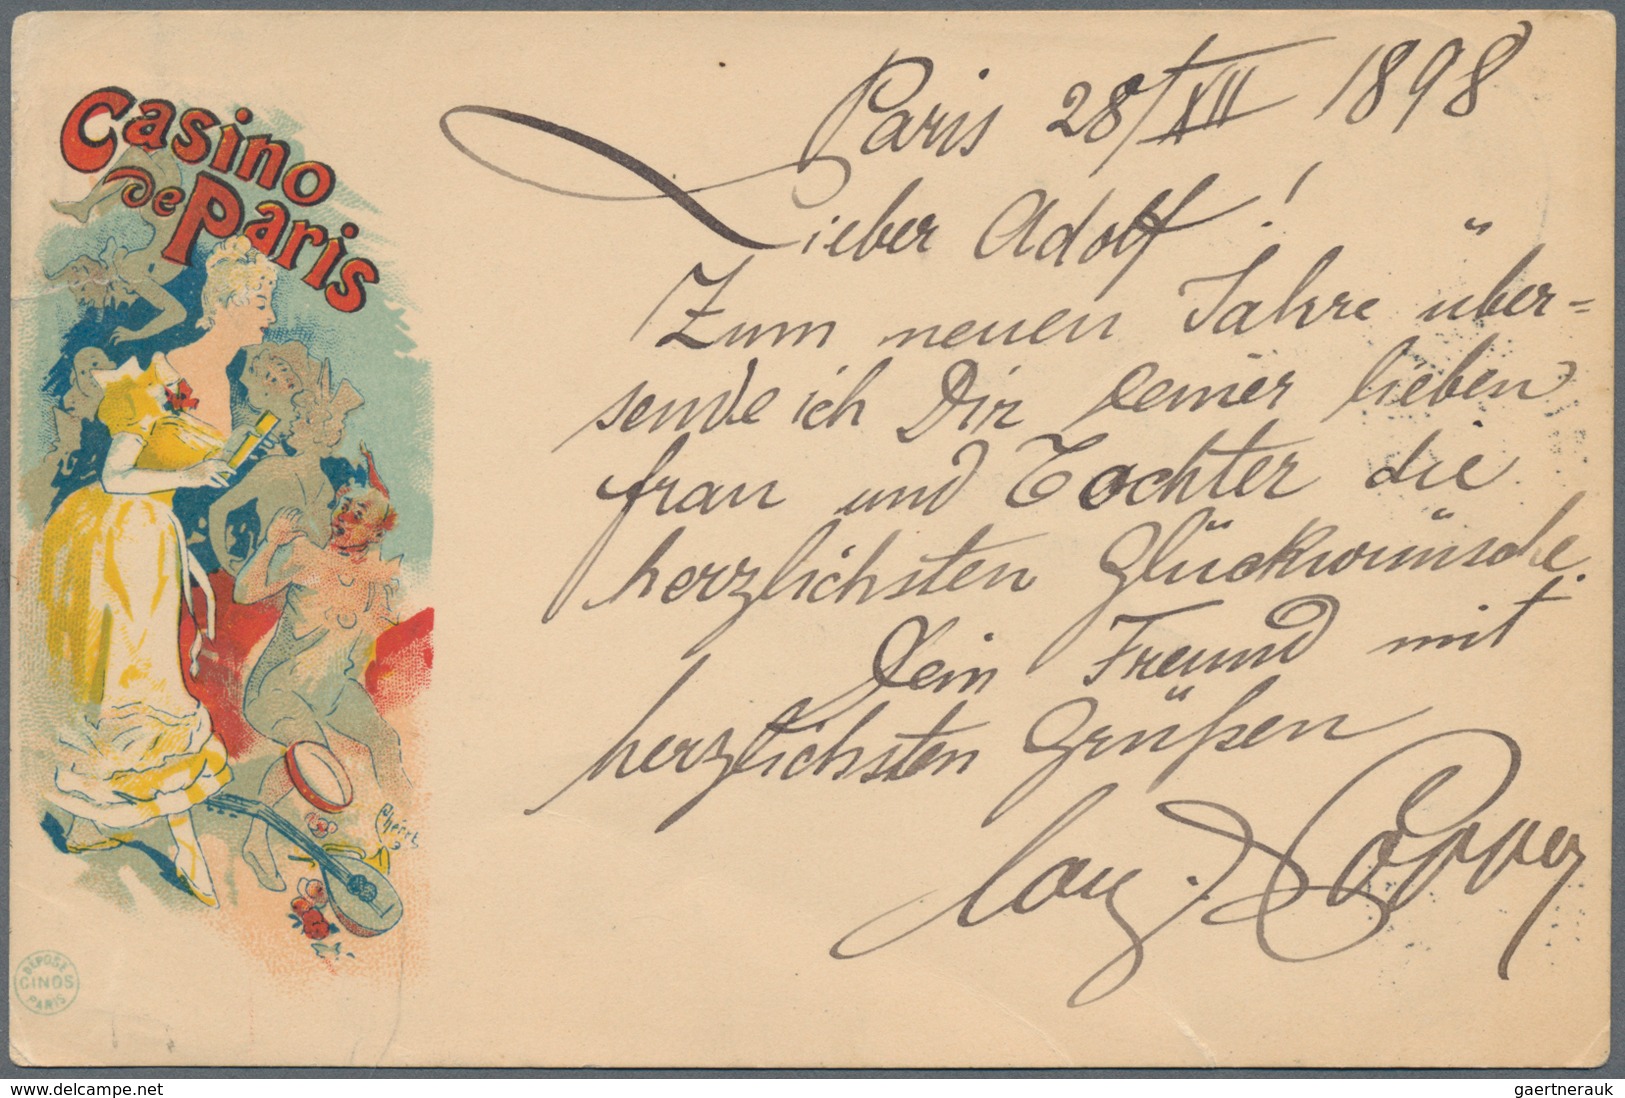 Casino
de Paris
Cheret
DÉPOSÉ
CINOS
PARIS
Paris 28/XII 1898
Lieber Adolf!
Zum neuen Jahre über=
sende ich Dir Deiner lieben
frau und Tochter die
herzlichsten Glückwünsche.
Dein Freund mit
herzlichsten Grüßen
www.delcampe.net
gaertnerauk